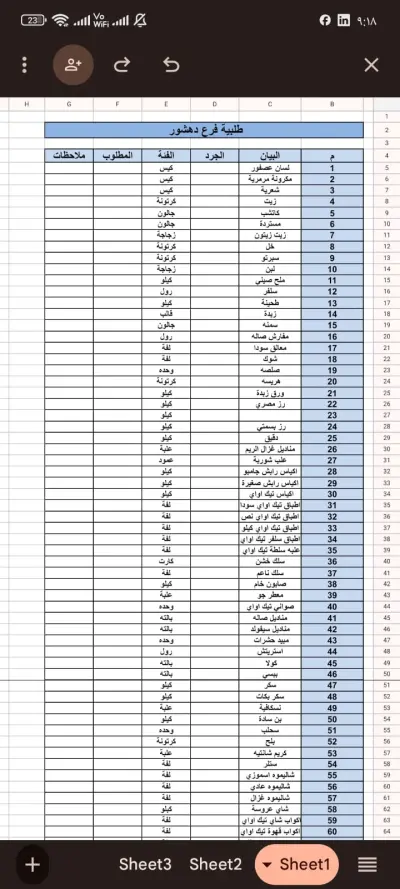 23 Vo WiFi ٩:١٨
H G F E D C B
1
2 طلبية فرع دهشور
3
4 م البيان الجرد الفئة المطلوب ملاحظات
5 1 لسان عصفور كيس
6 2 مكرونة مرمرية كيس
7 3 شعرية كيس
8 4 زيت كرتونة
9 5 كاتشب جالون
10 6 مستردة جالون
11 7 زيت زيتون زجاجة
12 8 خل كرتونة
13 9 سبرتو كرتونة
14 10 لبن زجاجة
15 11 ملح صيني كيلو
16 12 سلفر رول
17 13 طحينة كيلو
18 14 زبدة قالب
19 15 سمنه جالون
20 16 مفارش صاله رول
21 17 معالق سودا لفة
22 18 شوك لفة
23 19 صلصه وحده
24 20 هريسه كرتونة
25 21 ورق زبدة كيلو
26 22 رز مصري كيلو
27 23 كيلو
28 24 رز بسمتي كيلو
29 25 دقيق كيلو
30 26 مناديل غزال الريم علبة
31 27 علب شوربة عمود
32 28 اكياس رابش جامبو كيلو
33 29 اكياس رابش صغيرة كيلو
34 30 اكياس تيك اواي كيلو
35 31 اطباق تيك اواي سودا لفة
36 32 اطباق تيك اواي نص لفة
37 33 اطباق تيك اواي كيلو لفة
38 34 اطباق سلفر تيك اواي لفة
39 35 علبه سلطة تيك اواي لفة
40 36 سلك خشن كارت
41 37 سلك ناعم لفة
42 38 صابون خام كيلو
43 39 معطر جو علبة
44 40 صواني تيك اواي وحده
45 41 مناديل صاله بالته
46 42 مناديل سيفوند بالته
47 43 مبيد حشرات وحده
48 44 استريتش رول
49 45 كولا بالته
50 46 بيبسي بالته
51 47 سكر كيلو
52 48 سكر بكات كيلو
53 49 نسكافية علبة
54 50 بن سادة كيلو
55 51 سحلب وحده
56 52 بلح كرتونة
57 53 كريم شانتيه علبة
58 54 ستلر لفة
59 55 شاليموه اسموزي لفة
60 56 شاليموه عادي لفة
61 57 شاليموه غزال لفة
62 58 شاي عروسة كيلو
63 59 اكواب شاي تيك اواي لفة
64 60 اكواب قهوة تيك اواي لفة
Sheet3 Sheet2 Sheet1